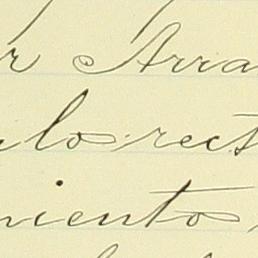 r Arra
ulo rect
niento,